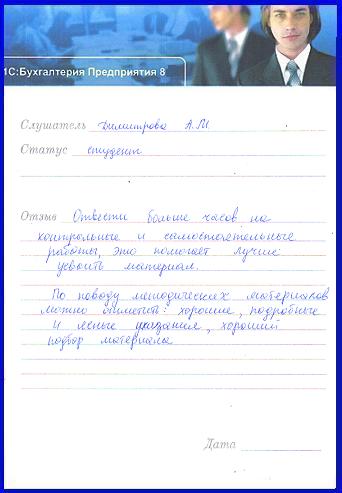 1С:Бухгалтерия Предприятия 8
Слушатель Димитрова А.М
Статус студент
Отзыв Отвести больше часов на
контрольные и самостоятельные
работы, это помогает лучше
усвоить материал.
По поводу методических материалов
можно отметить: хорошие, подробные
и ясные указания, хороший
подбор материала
Дата